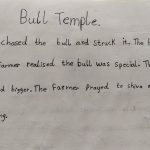 Bull Temple.
chased the bull and struck it. The b
farmer realised the bull was special. Th
d bigger. The farmer prayed to shiva a
ig.